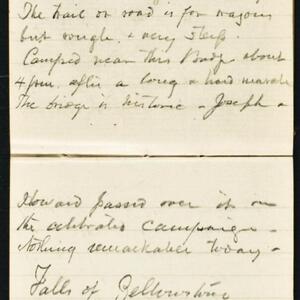 The trail or road is for wagons
but rough, & very steep.
Camped near this Bridge about
4 p.m. after a long & hard march.
The bridge is historic - Joseph &
Howard passed over it on
the celebrated campaign -
Nothing remarkable today -
Falls of Yellowstone